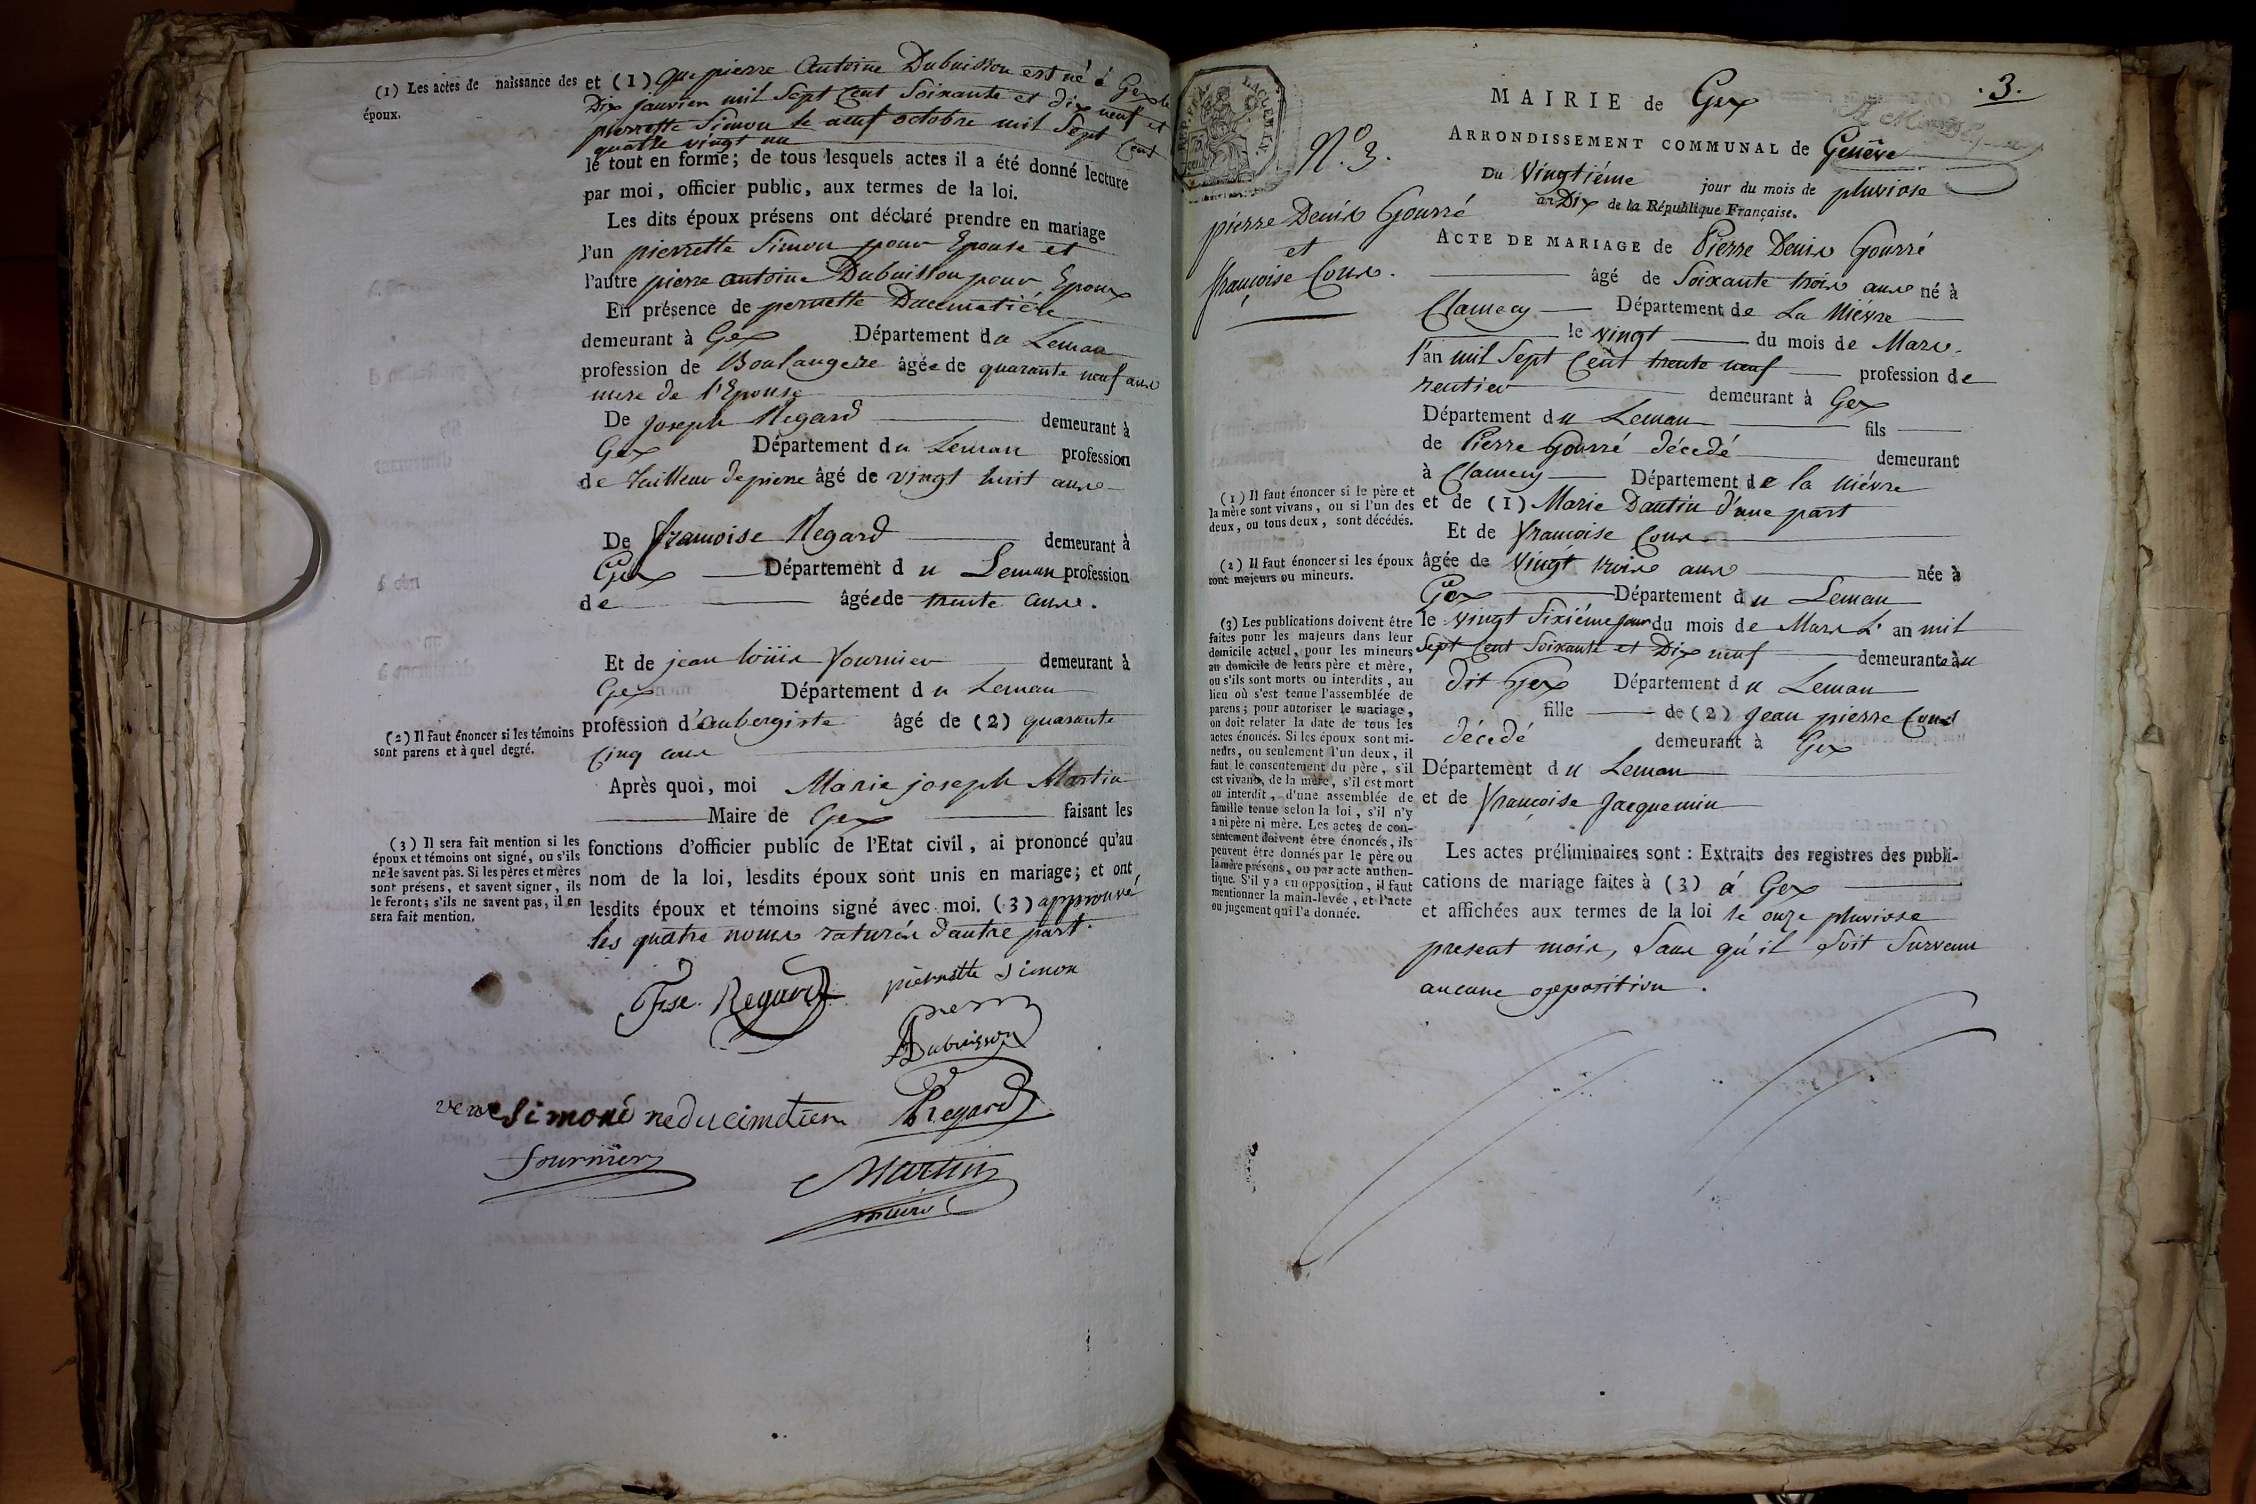 (1) Les actes de naissance des
époux.
et (1) que pierre Antoine Dubuisson est né à Gex le
Dix janvier mil Sept Cent Soixante et dix neuf et
pierrette Simon le neuf octobre mil Sept Cent
quatre vingt un
le tout en forme; de tous lesquels actes il a été donné lecture
par moi, officier public, aux termes de la loi.
Les dits époux présens ont déclaré prendre en mariage
l'un pierrette Simon pour Epouse et
l'autre pierre antoine Dubuisson pour Epoux
En présence de pernette
demeurant à Gex Département du Leman
profession de Boulangere âgée de quarante neuf ans
mere de l'Epouse
De joseph Regard demeurant à
Gex Département du Leman profession
de tailleur de pierre âgé de vingt huit ans
De françoise Regard demeurant à
Gex Département du Leman profession
de âgée de trente ans.
Et de jean loüis fournier demeurant à
Gex Département du Leman
(2) Il faut énoncer si les témoins
sont parens et à quel degré.
profession d'aubergiste âgé de (2) quarante
cinq ans
Après quoi, moi Marie joseph Martin
Maire de Gex faisant les
(3) Il sera fait mention si les
époux et témoins ont signé, ou s'ils
ne le savent pas. Si les pères et mères
sont présens, et savent signer, ils
le feront; s'ils ne savent pas, il en
sera fait mention.
fonctions d'officier public de l'Etat civil, ai prononcé qu'au
nom de la loi, lesdits époux sont unis en mariage; et ont
lesdits époux et témoins signé avec moi. (3) approuvé
les quatre noms raturés d'autre part.
Fse. Regard
pierrette simon
Dubuisson
veuve simone
Regard
fournier
Martin
maire
.3.
MAIRIE de Gex
ARRONDISSEMENT COMMUNAL de Genêve
N.o 3.
Du Vingtiéme jour du mois de pluviose
an Dix de la République Française.
pierre Denis Gourré
et
françoise Cons.
ACTE DE MARIAGE de Pierre Denis Gourré
âgé de Soixante trois ans né à
Clamecy Département de La Niévre
le vingt du mois de Mars
l'an mil Sept Cent trente neuf profession de
rentier demeurant à Gex
Département du Leman fils
de Pierre Gourré décedé demeurant
à Clamecy Département de la niévre
(1) Il faut énoncer si le père et
la mère sont vivans, ou si l'un des
deux, ou tous deux, sont décédés.
et de (1) Marie Dantin d'une part
Et de françoise Cons
(2) Il faut énoncer si les époux
sont majeurs ou mineurs.
âgée de Vingt trois ans née à
Gex Département du Leman
(3) Les publications doivent être
faites pour les majeurs dans leur
domicile actuel, pour les mineurs
au domicile de leurs père et mère,
ou s'ils sont morts ou interdits, au
lieu où s'est tenue l'assemblée de
parens; pour autoriser le mariage,
on doit relater la date de tous les
actes énoncés. Si les époux sont mi-
neurs, ou seulement l'un deux, il
faut le consentement du père, s'il
est vivant, de la mère, s'il est mort
ou interdit, d'une assemblée de
famille tenue selon la loi, s'il n'y
a ni père ni mère. Les actes de con-
sentement doivent être énoncés, ils
peuvent être donnés par le père ou
la mère présens, ou par acte authen-
tique. S'il y a eu opposition, il faut
mentionner la main-levée, et l'acte
ou jugement qui l'a donnée.
le vingt Sixiéme jour du mois de Mars L'an mil
Sept Cent Soixante et Dix neuf demeurante au
dit Gex Département du Leman
fille de (2) Jean pierre Cons
décedé demeurant à Gex
Département du Leman
et de françoise Jacquemin
Les actes préliminaires sont : Extraits des registres des publi-
cations de mariage faites à (3) à Gex
et affichées aux termes de la loi le onze pluviose
present mois, Sans qu'il Soit Survenu
aucune opposition.